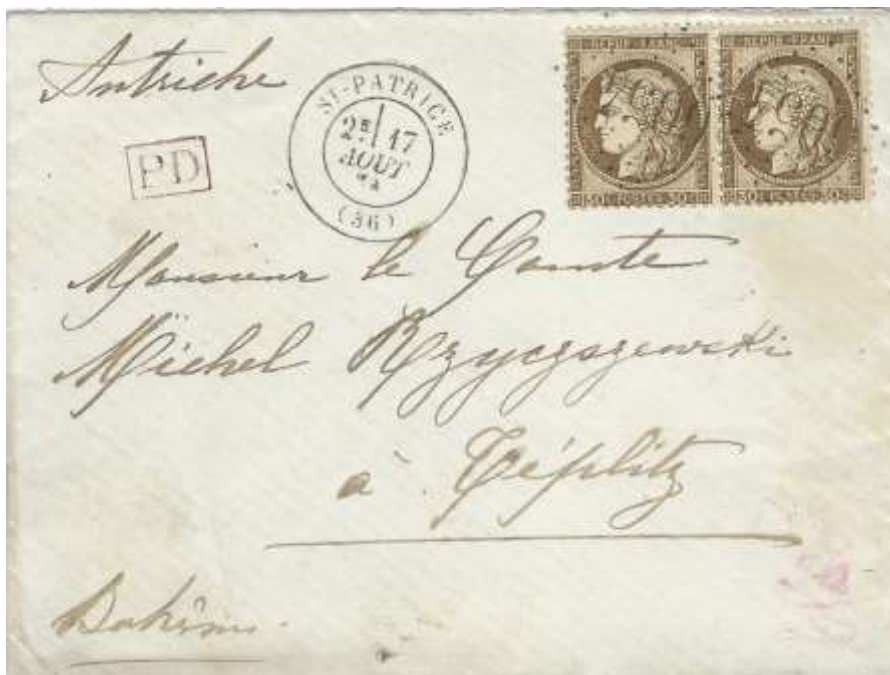 Autriche
PD
ST-PATRICE
2E 17
AOUT
74
(36)
REPUB FRANC
30 C POSTES 30 C
REPUB FRANC
30 C POSTES 30 C
Monsieur le Comte
Michel Rzyczszewski
à Téplitz
Bohême.